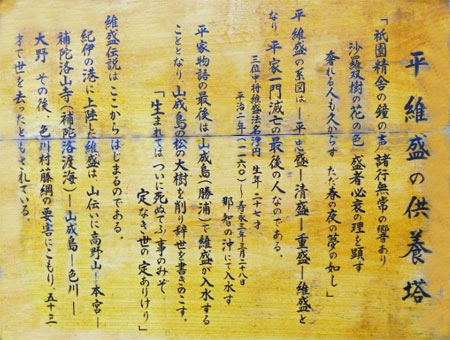 平維盛の供養塔
「祇園精舎の鐘の声 諸行無常の響あり
沙羅双樹の花の色 盛者必衰の理を顕す
奢れる人も久からず ただ春の夜の夢の如し」
平 維盛の系図は―平忠盛―清盛―重盛―維盛と
なり 平家一門滅亡の最後の人なのである。
三位中将維盛法名浄円 生年二十七才
平治二年(一一六〇)〜寿永三年三月二十八日
那智の沖にて入水す
平家物語の最後は山成島(勝浦)で維盛が入水する
こととなり 山成島の松の大樹を削り辞世を書きのこす。
「生まれては つひに死ぬてふ事のみぞ
定なき世の定ありけり」
維盛伝説はここからはじまるのである。
紀伊の港に上陸した維盛は 山伝いに高野山―本宮―
補陀洛山寺(補陀洛渡海)―山成島―色川―
大野 その後、色川村藤綱の要害にこもり、五十三
才で世を去ったともされている。